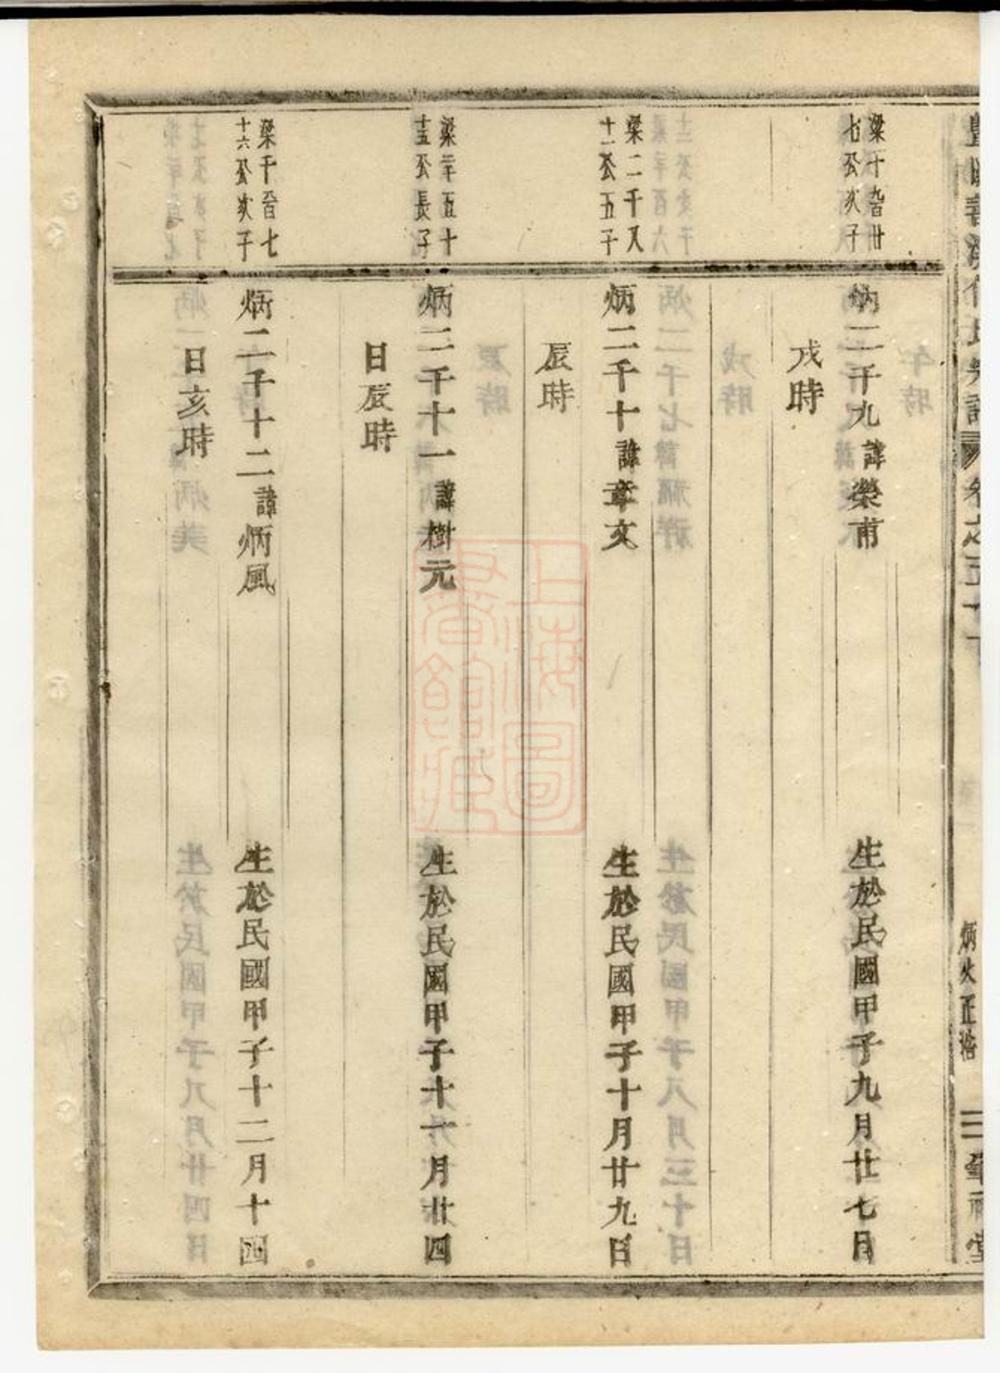 梁千
七公次子
炳二千九諱榮甫
生於民國甲子九月廿七日
戌時
梁二千又
十一公五子
炳二千十諱章文
生於民國甲子十月廿九日
辰時
公長子
炳二千十一諱樹元
生於民國甲子十一月廿四
日辰時
梁千
十六公次子
炳二千十二諱炳風
生於民國甲子十二月十四
日亥時
卷之五十
炳火正
上海圖
書館藏